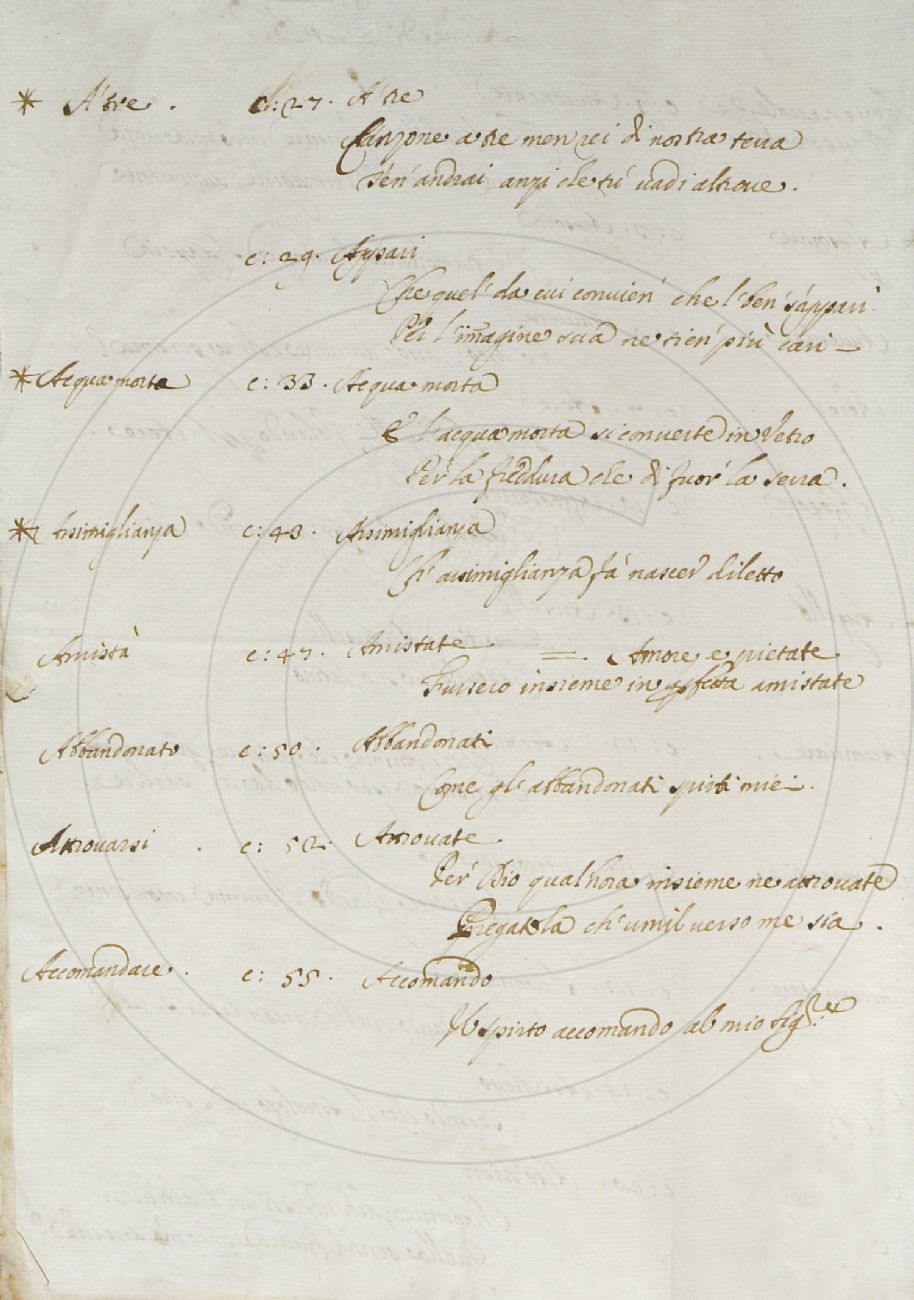 * A' tre . c: 27. A' tre
Canzone a tre men rei di nostra terra
Sen' andrai anzi che tu' vadi altroue.
c: 29. Appari
Che quel' da cui convien' che l' ben' s'appari
Per l' imagine sua ne tien' più cari
* Acqua morta c: 33. Acqua morta
E l'acqua morta si converte in Vetro
Per la freddura che di fuor' la serra.
* Assimiglianza c: 43. Assimiglianza
Ch' assimiglianza fa' nascer diletto
Amistà c: 47. Amistate = Amore, e pietate
Fussero insieme in amistate
Abbandonato c: 50. Abbandonati
Come gl' abbandonati spirti miei.
Attrouarsi . c: 52. Attrouate.
Per Dio qualhora insieme ne attrouate
Pregatela ch' umil uerso me sia.
Accomandare. c: 55. Accomando
Il spirto accomando al mio sig.re